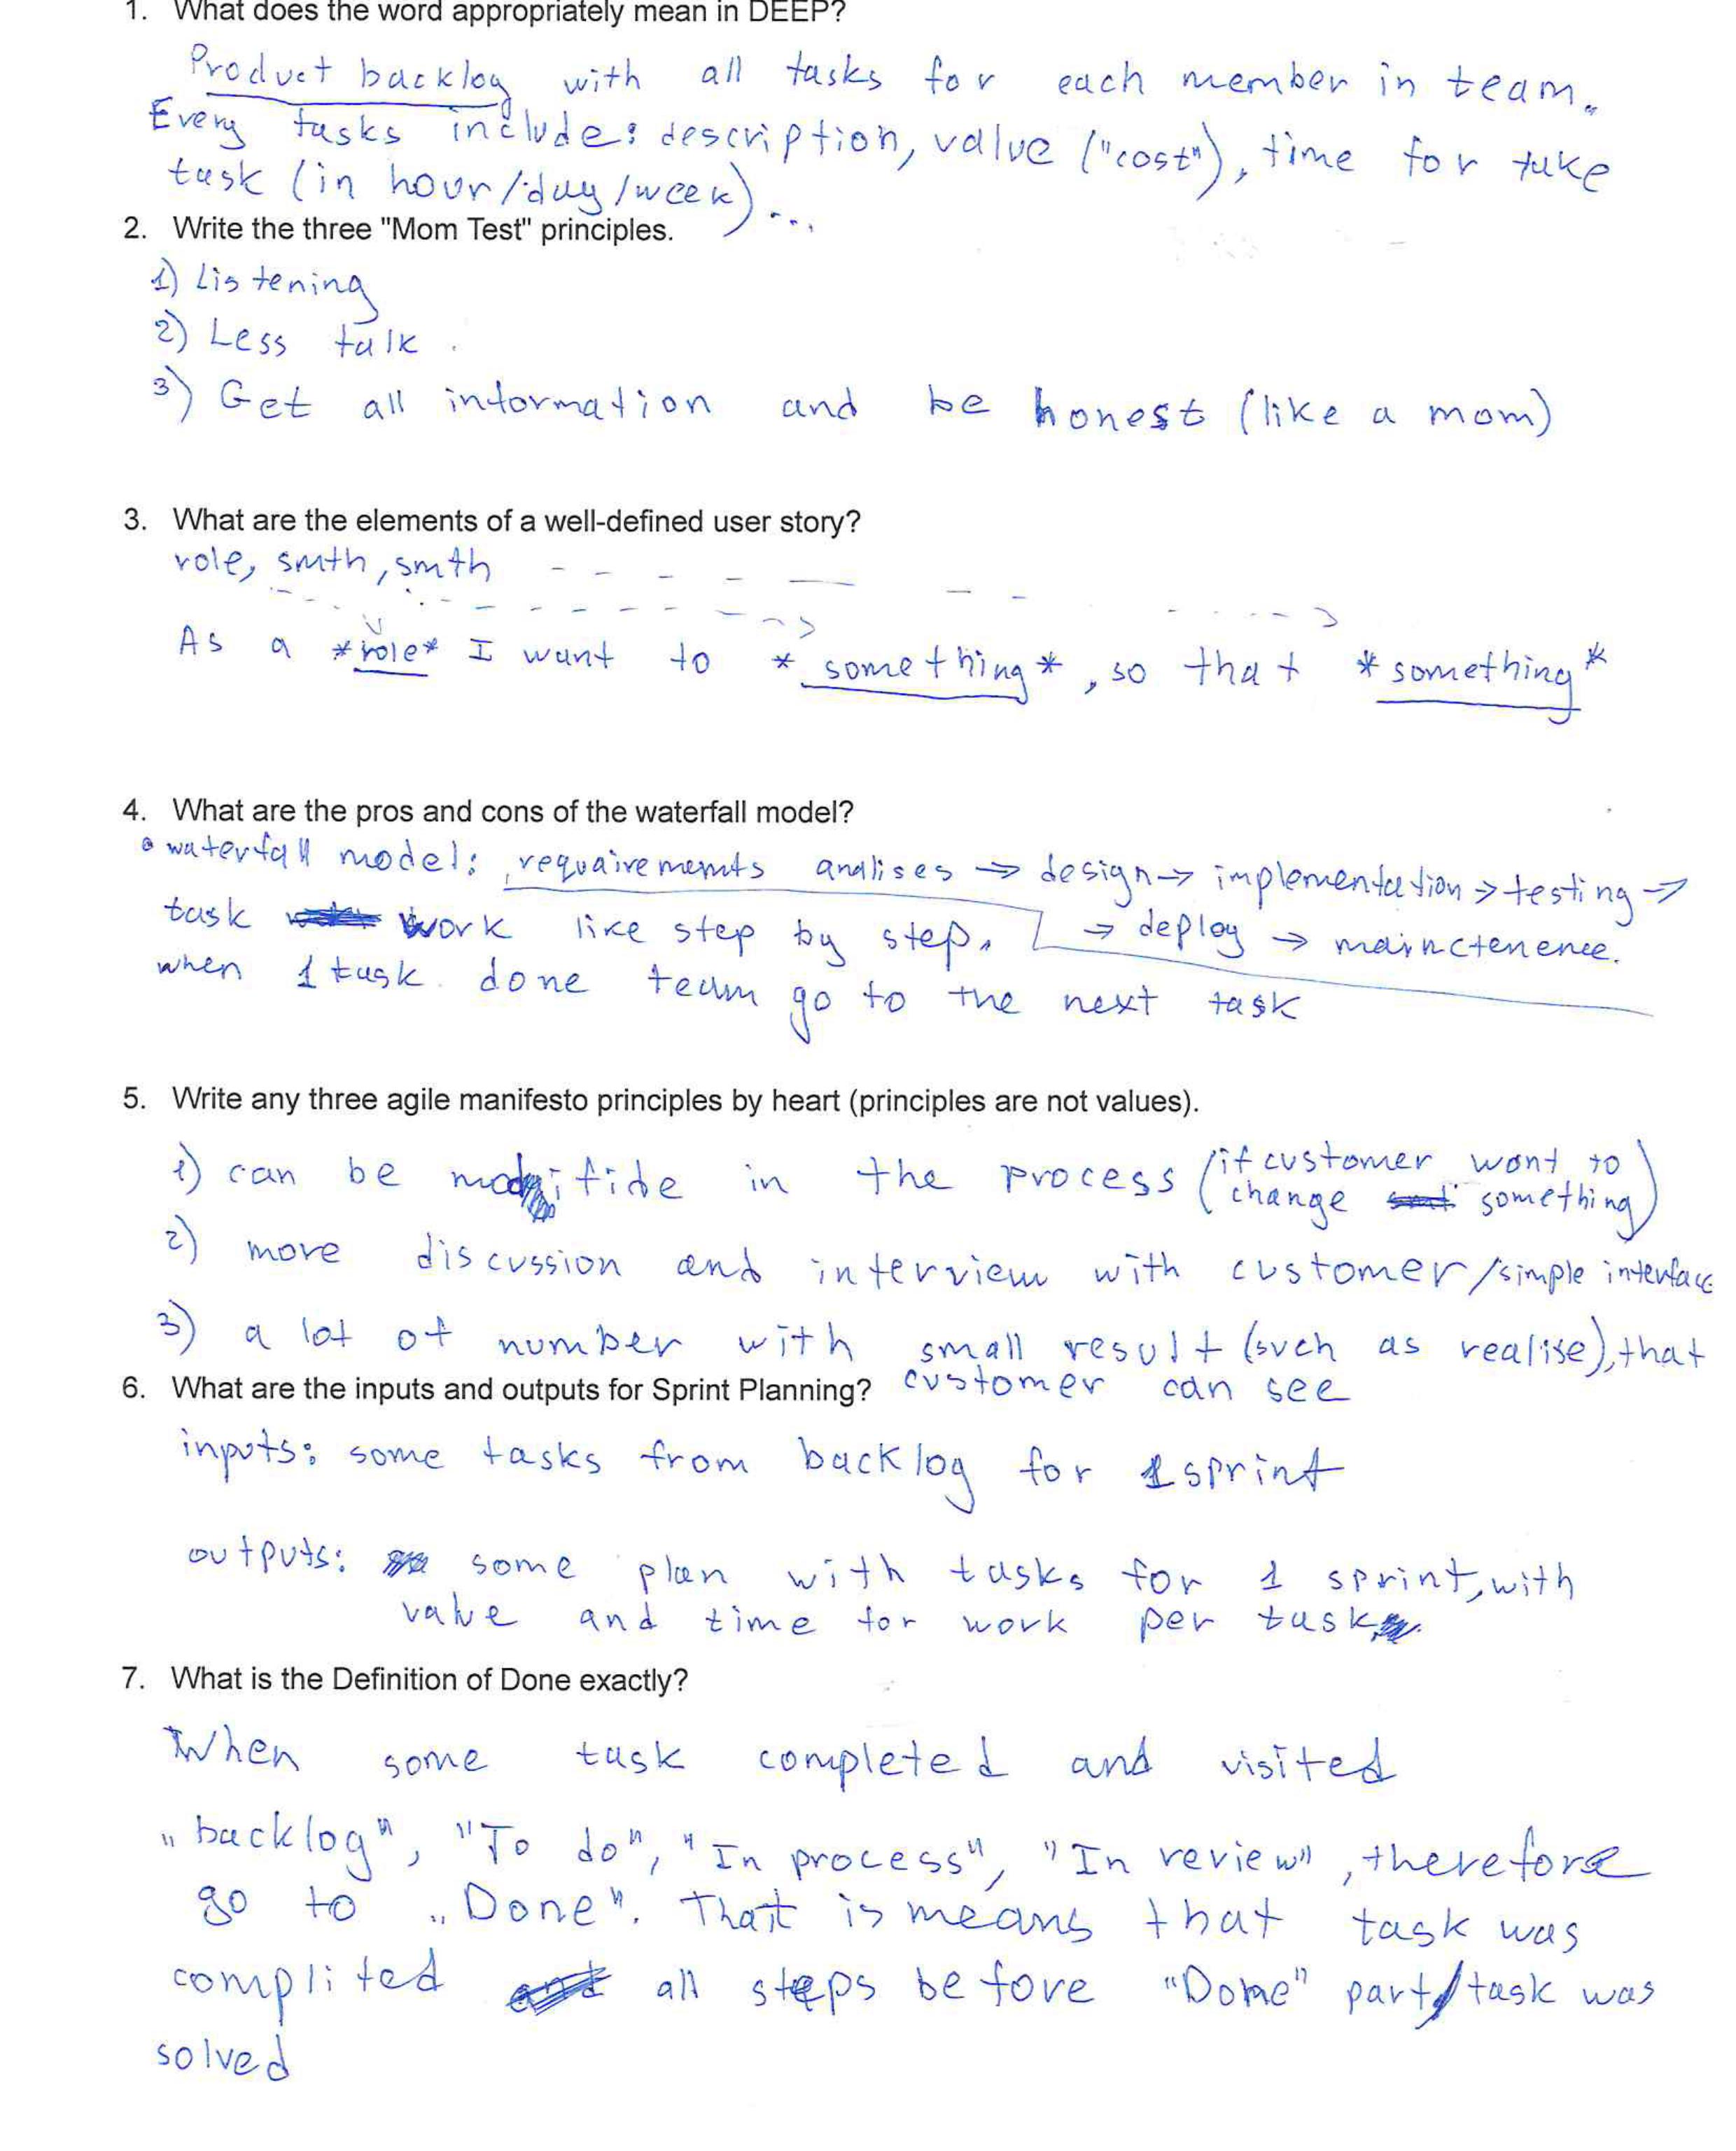 1. What does the word appropriately mean in DEEP?
Product backlog with all tasks for each member in team.
Every tasks include: description, value ("cost"), time for take
task (in hour/day/week)...
2. Write the three "Mom Test" principles.
1) Listening
2) Less talk.
3) Get all information and be honest (like a mom)
3. What are the elements of a well-defined user story?
role, smth, smth
As a *role* I want to *something*, so that *something*
4. What are the pros and cons of the waterfall model?
• waterfall model: requairements analises → design → implementation → testing →
task work like step by step. → deploy → mainctenence.
when 1 task done team go to the next task
5. Write any three agile manifesto principles by heart (principles are not values).
1) can be modifide in the process (if customer want to
change something)
2) more discussion and interview with customer/simple interface
3) a lot of number with small result (such as realise), that
6. What are the inputs and outputs for Sprint Planning? customer can see
inputs: some tasks from backlog for 1 sprint
outputs: some plan with tasks for 1 sprint, with
value and time for work per task
7. What is the Definition of Done exactly?
When some task completed and visited
„backlog", "To do", "In process", "In review", therefore
go to „Done". That is means that task was
complited all steps before "Done" part/task was
solved